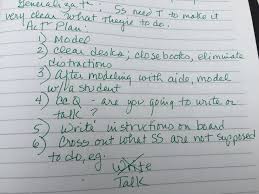 Generalizat": Ss need T to make it
very clear what they're to do.
Act" Plan:
1) Model
2) clear desks; close books, eliminate
distractions
3) After modeling with aide, model
w/a student
4) ICQ - are you going to write or
talk?
5) Write instructions on board
6) Cross out what SS are not supposed
to do, eg:
Write
Talk